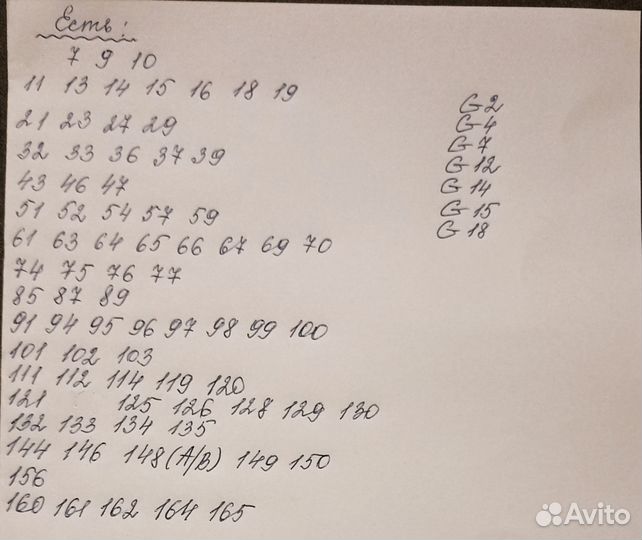 Есть:
7 9 10
11 13 14 15 16 18 19
21 23 27 29
32 33 36 37 39
43 46 47
51 52 54 57 59
61 63 64 65 66 67 69 70
74 75 76 77
85 87 89
91 94 95 96 97 98 99 100
101 102 103
111 112 114 119 120
121 125 126 128 129 130
132 133 134 135
144 146 148(A/B) 149 150
156
160 161 162 164 165
G2
G4
G7
G12
G14
G15
G18
Avito